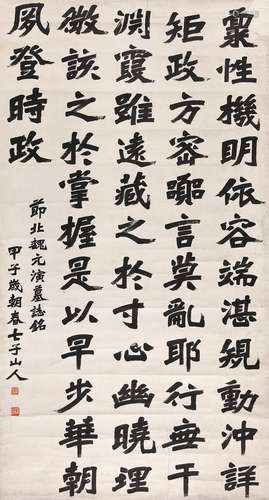 稟性機明依容端湛規動沖詳
矩政方密嘶言莫亂耶行無干
淵覆雖遠藏之於寸心幽曉理
微該之於掌握是以早步華朝
夙登時政
節北魏元演墓誌銘
甲子歲朝春七子山人